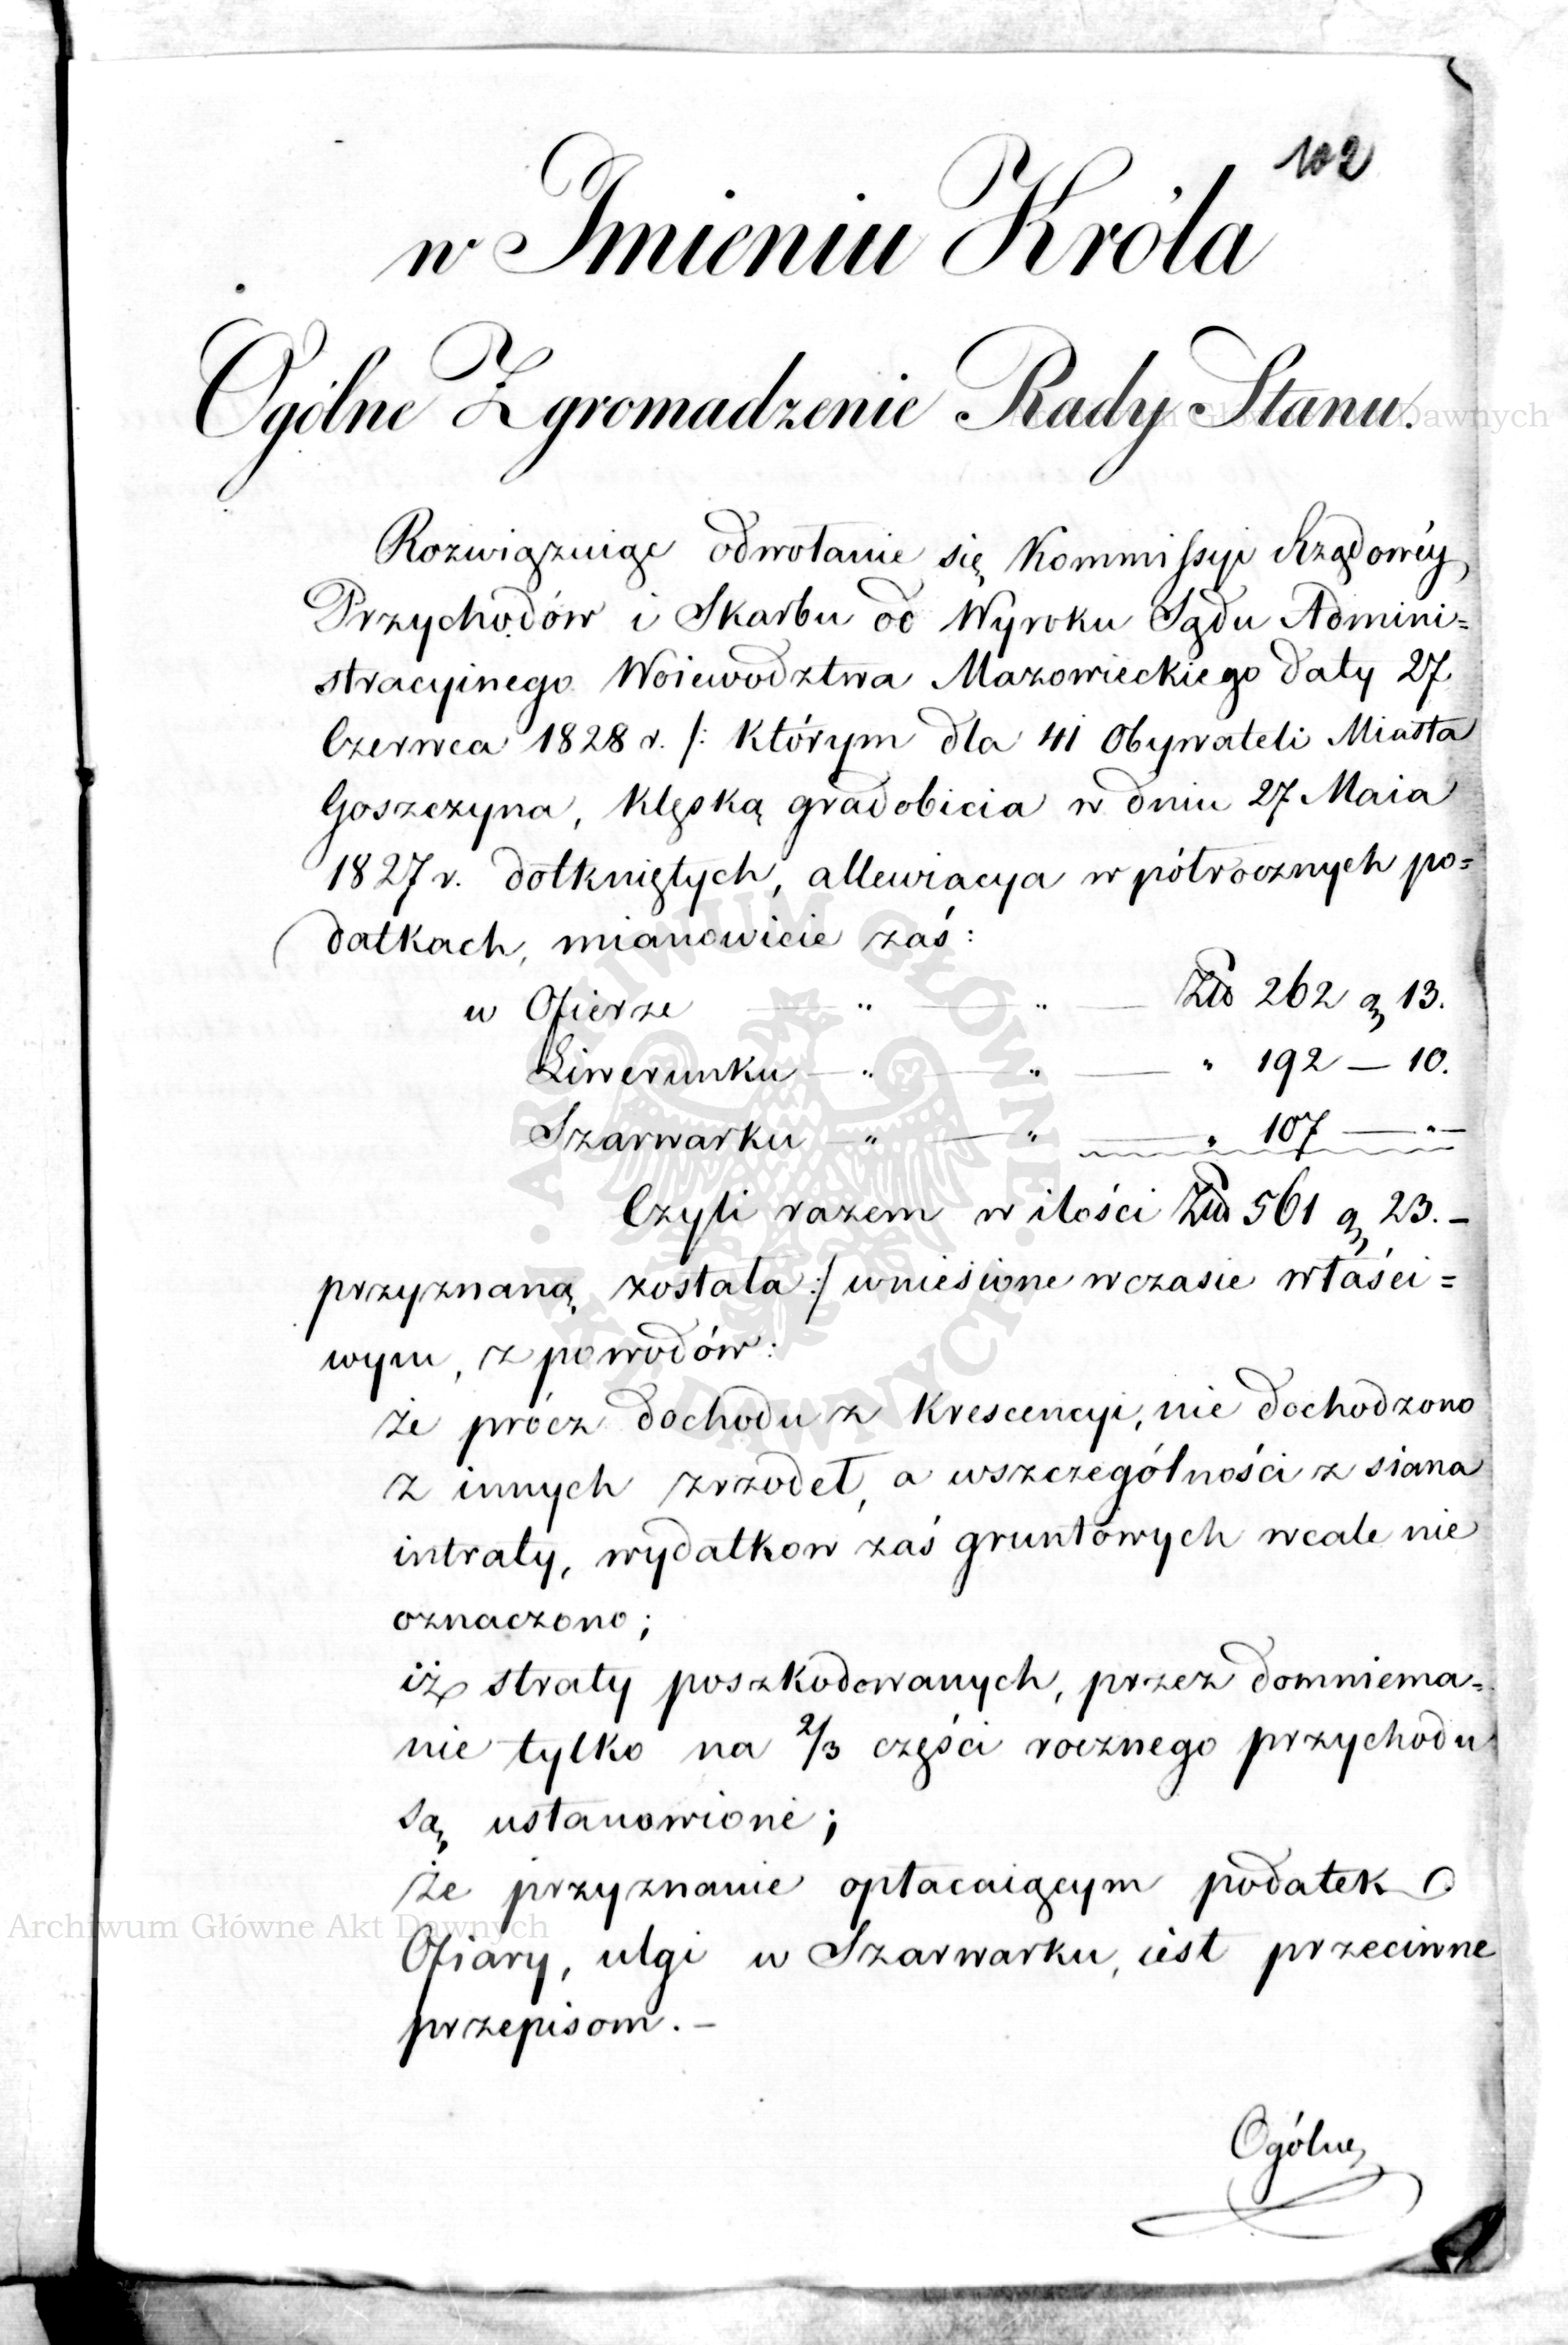 102
w Imieniu Króla
Ogólne Zgromadzenie Rady Stanu.
Rozwiązuiąc odwołanie się Kommissyi Rządowéy
Przychodów i Skarbu od Wyroku Sądu Admini=
stracyinego Woiewodztwa Mazowieckiego daty 27
Czerwca 1828 r. /: którym dla 41 Obywateli Miasta
Goszczyna, klęską gradobicia w dniu 27 Maia
1827 r. dotkniętych, allewiacya w półrocznych po=
datkach, mianowicie zaś:
w Ofierze — " — " — Złp 262 gr 13.
Liwerunku — " — " — " 192 — 10.
Szarwarku — " — " — " 107 — " —
Czyli razem w ilości Złp 561 gr 23. –
przyznaną została :/ wniesione w czasie właści=
wym, z powodów:
że prócz dochodu z krescencyi, nie dochodzono
z innych zrzodeł, a wszczególności z siana
intraty, wydatkow zaś gruntowych wcale nie
oznaczono;
iż straty poszkodowanych, przez domniema=
nie tylko na 2/3 części rocznego przychodu
są ustanowione;
że przyznanie opłacaiącym podatek
Ofiary, ulgi w Szarwarku, iest przeciwne
przepisom. –
Ogólne
Archiwum Główne Akt Dawnych
Archiwum Główne Akt Dawnych
ARCHIWUM GŁÓWNE AKT DAWNYCH